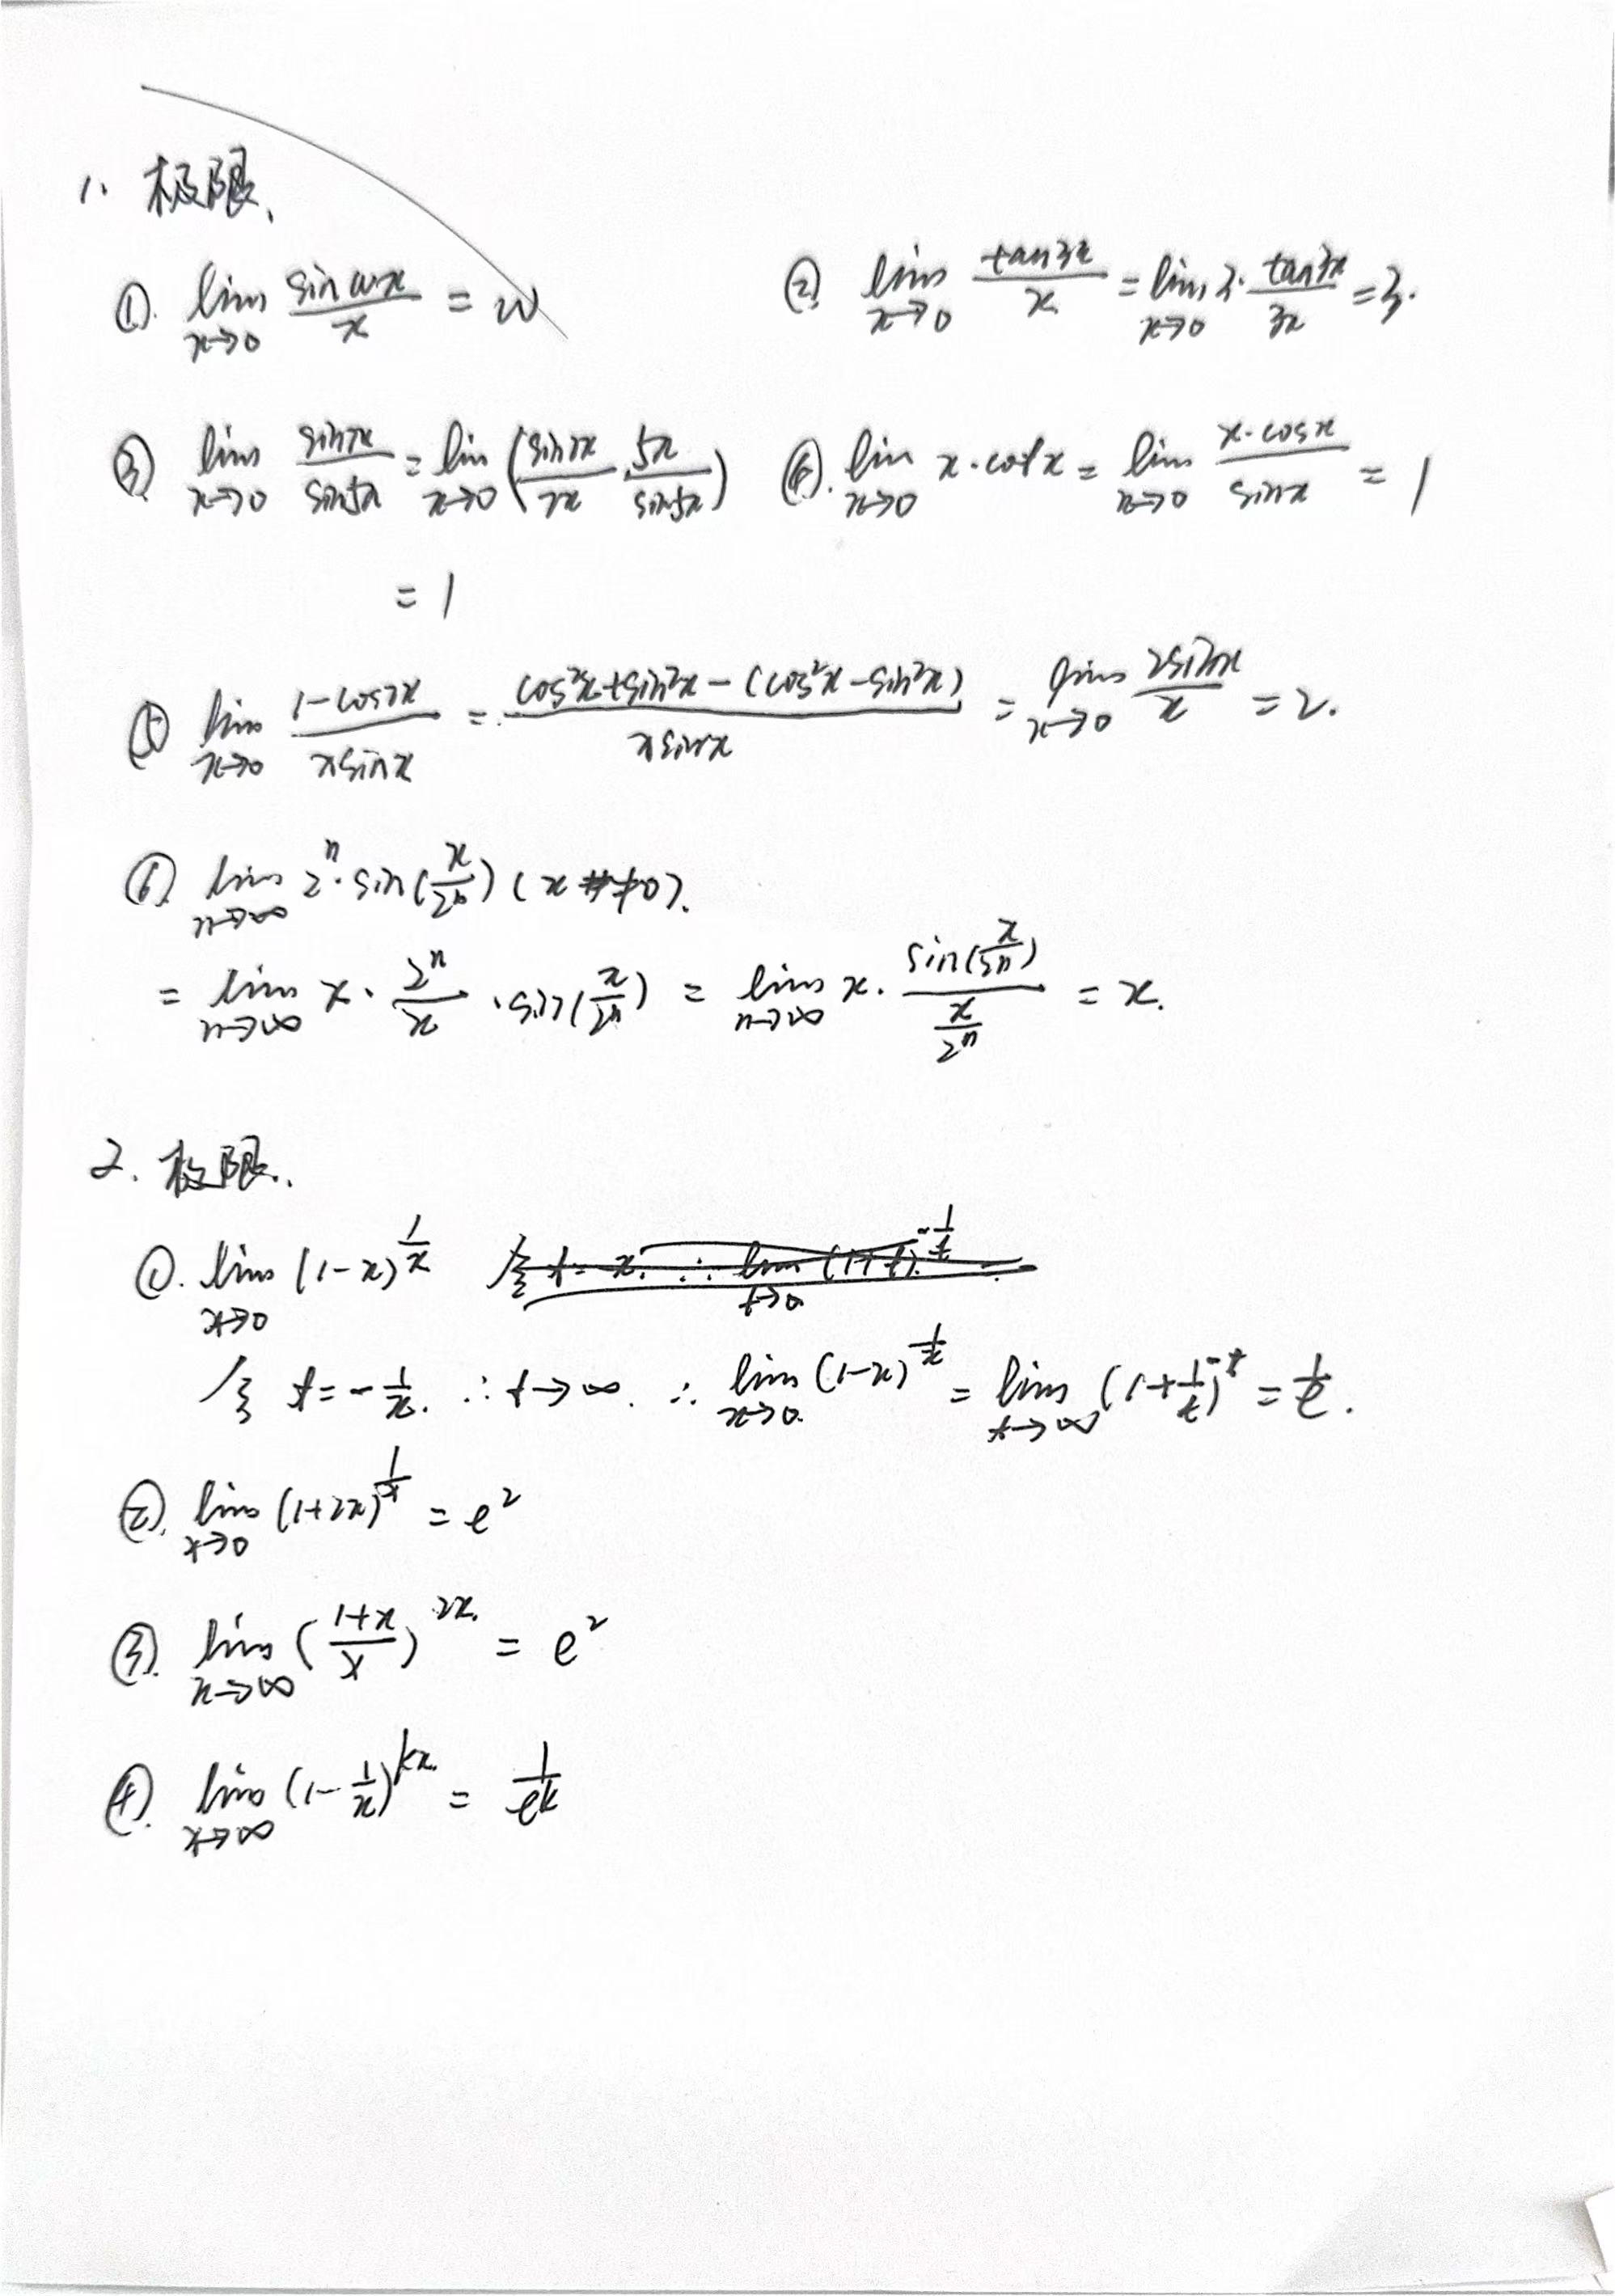 1. 极限.
①. lim_{x→0} sin ωx / x = ω
②. lim_{x→0} tan3x / x = lim_{x→0} 3·tan3x / 3x = 3.
③. lim_{x→0} sin2x / sin5x = lim_{x→0} (sin2x / 2x · 5x / sin5x)
④. lim_{x→0} x·cotx = lim_{x→0} x·cosx / sinx = 1
= 1
⑤ lim_{x→0} (1-cos2x) / (xsinx) = (cos²x+sin²x-(cos²x-sin²x)) / (xsinx) = lim_{x→0} 2sinx / x = 2.
⑥. lim_{n→∞} 2ⁿ·sin(x/2ⁿ) (x≠0).
= lim_{n→∞} x · 2ⁿ/x · sin(x/2ⁿ) = lim_{n→∞} x · sin(x/2ⁿ) / (x/2ⁿ) = x.
2. 极限.
①. lim_{x→0} (1-x)^{1/x} 令t=-x. ∴ lim_{t→0} (1+t)^{-1/t} =
令 t=-1/x. ∴t→∞. ∴ lim_{x→0} (1-x)^{1/x} = lim_{t→∞} (1+1/t)^{-t} = 1/e.
②. lim_{x→0} (1+2x)^{1/x} = e²
③. lim_{x→∞} ((1+x)/x)^{2x} = e²
④. lim_{x→∞} (1-1/x)^{kx} = 1/e^k